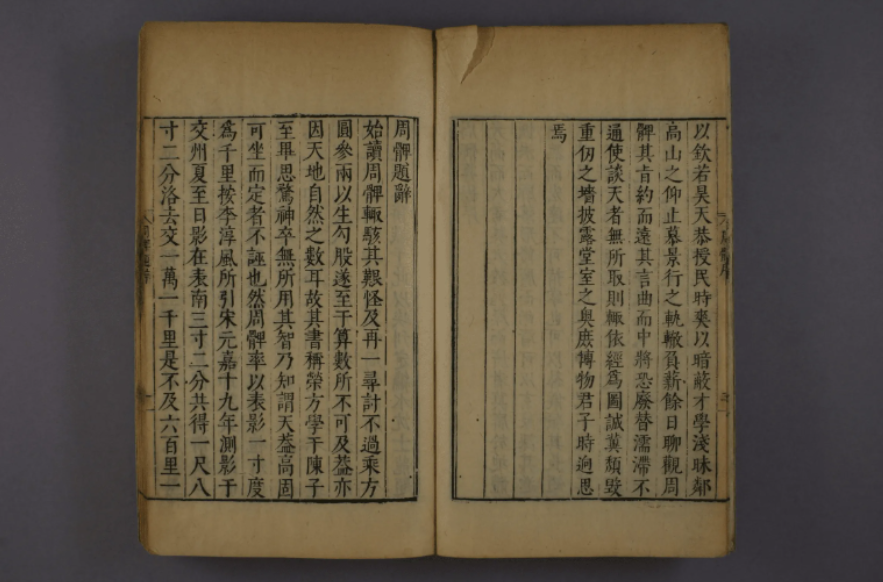 以欽若昊天恭授民時爽以暗蔽才學淺昧鄰
高山之仰止慕景行之軌轍負薪餘日聊觀周
髀其旨約而遠其言曲而中將恐廢替濡滯不
通使談天者無所取則輒依經為圖誠冀頹毀
重仞之墻披露堂室之奧庶博物君子時迥思
焉
周髀題辭
始讀周髀輒駭其艱怪及再一尋計不過乘方
圓參兩以生勾股遂至于算數所不可及葢亦
因天地自然之數耳故其書稱榮方學于陳子
至畢思驚神卒無所用其智乃知謂天葢高固
可坐而定者不誣也然周髀率以表影一寸度
為千里按李淳風所引宋元嘉十九年測影于
交州夏至日影在表南三寸二分共得一尺八
寸二分洛去交一萬一千里是不及六百里一